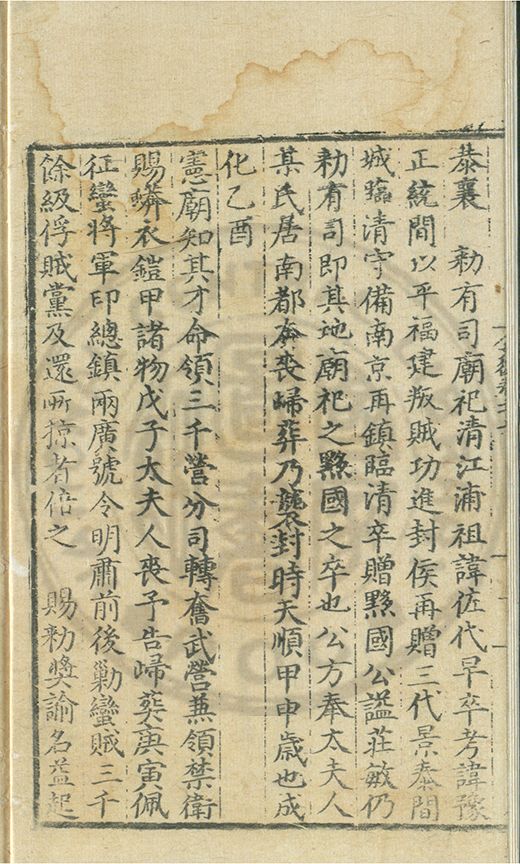 恭襄　勑有司廟祀清江浦祖諱佐代早卒考諱豫
正統間以平福建叛賊功進封侯再贈三代景泰間
城臨清守備南京再鎮臨清卒贈黟國公謚莊敏仍
勑有司即其地廟祀之黟國之卒也公方奉太夫人
某氏居南都奔喪歸葬乃襲封時天順甲申歲也成
化乙酉
憲廟知其才命領三千營分司轉奮武營兼領禁衛
賜蟒衣鎧甲諸物戊子太夫人喪予告歸葬庚寅佩
征蠻將軍印總鎮兩廣號令明肅前後勦蠻賊三千
餘級俘賊黨及還所掠者倍之　賜勑獎諭名益起